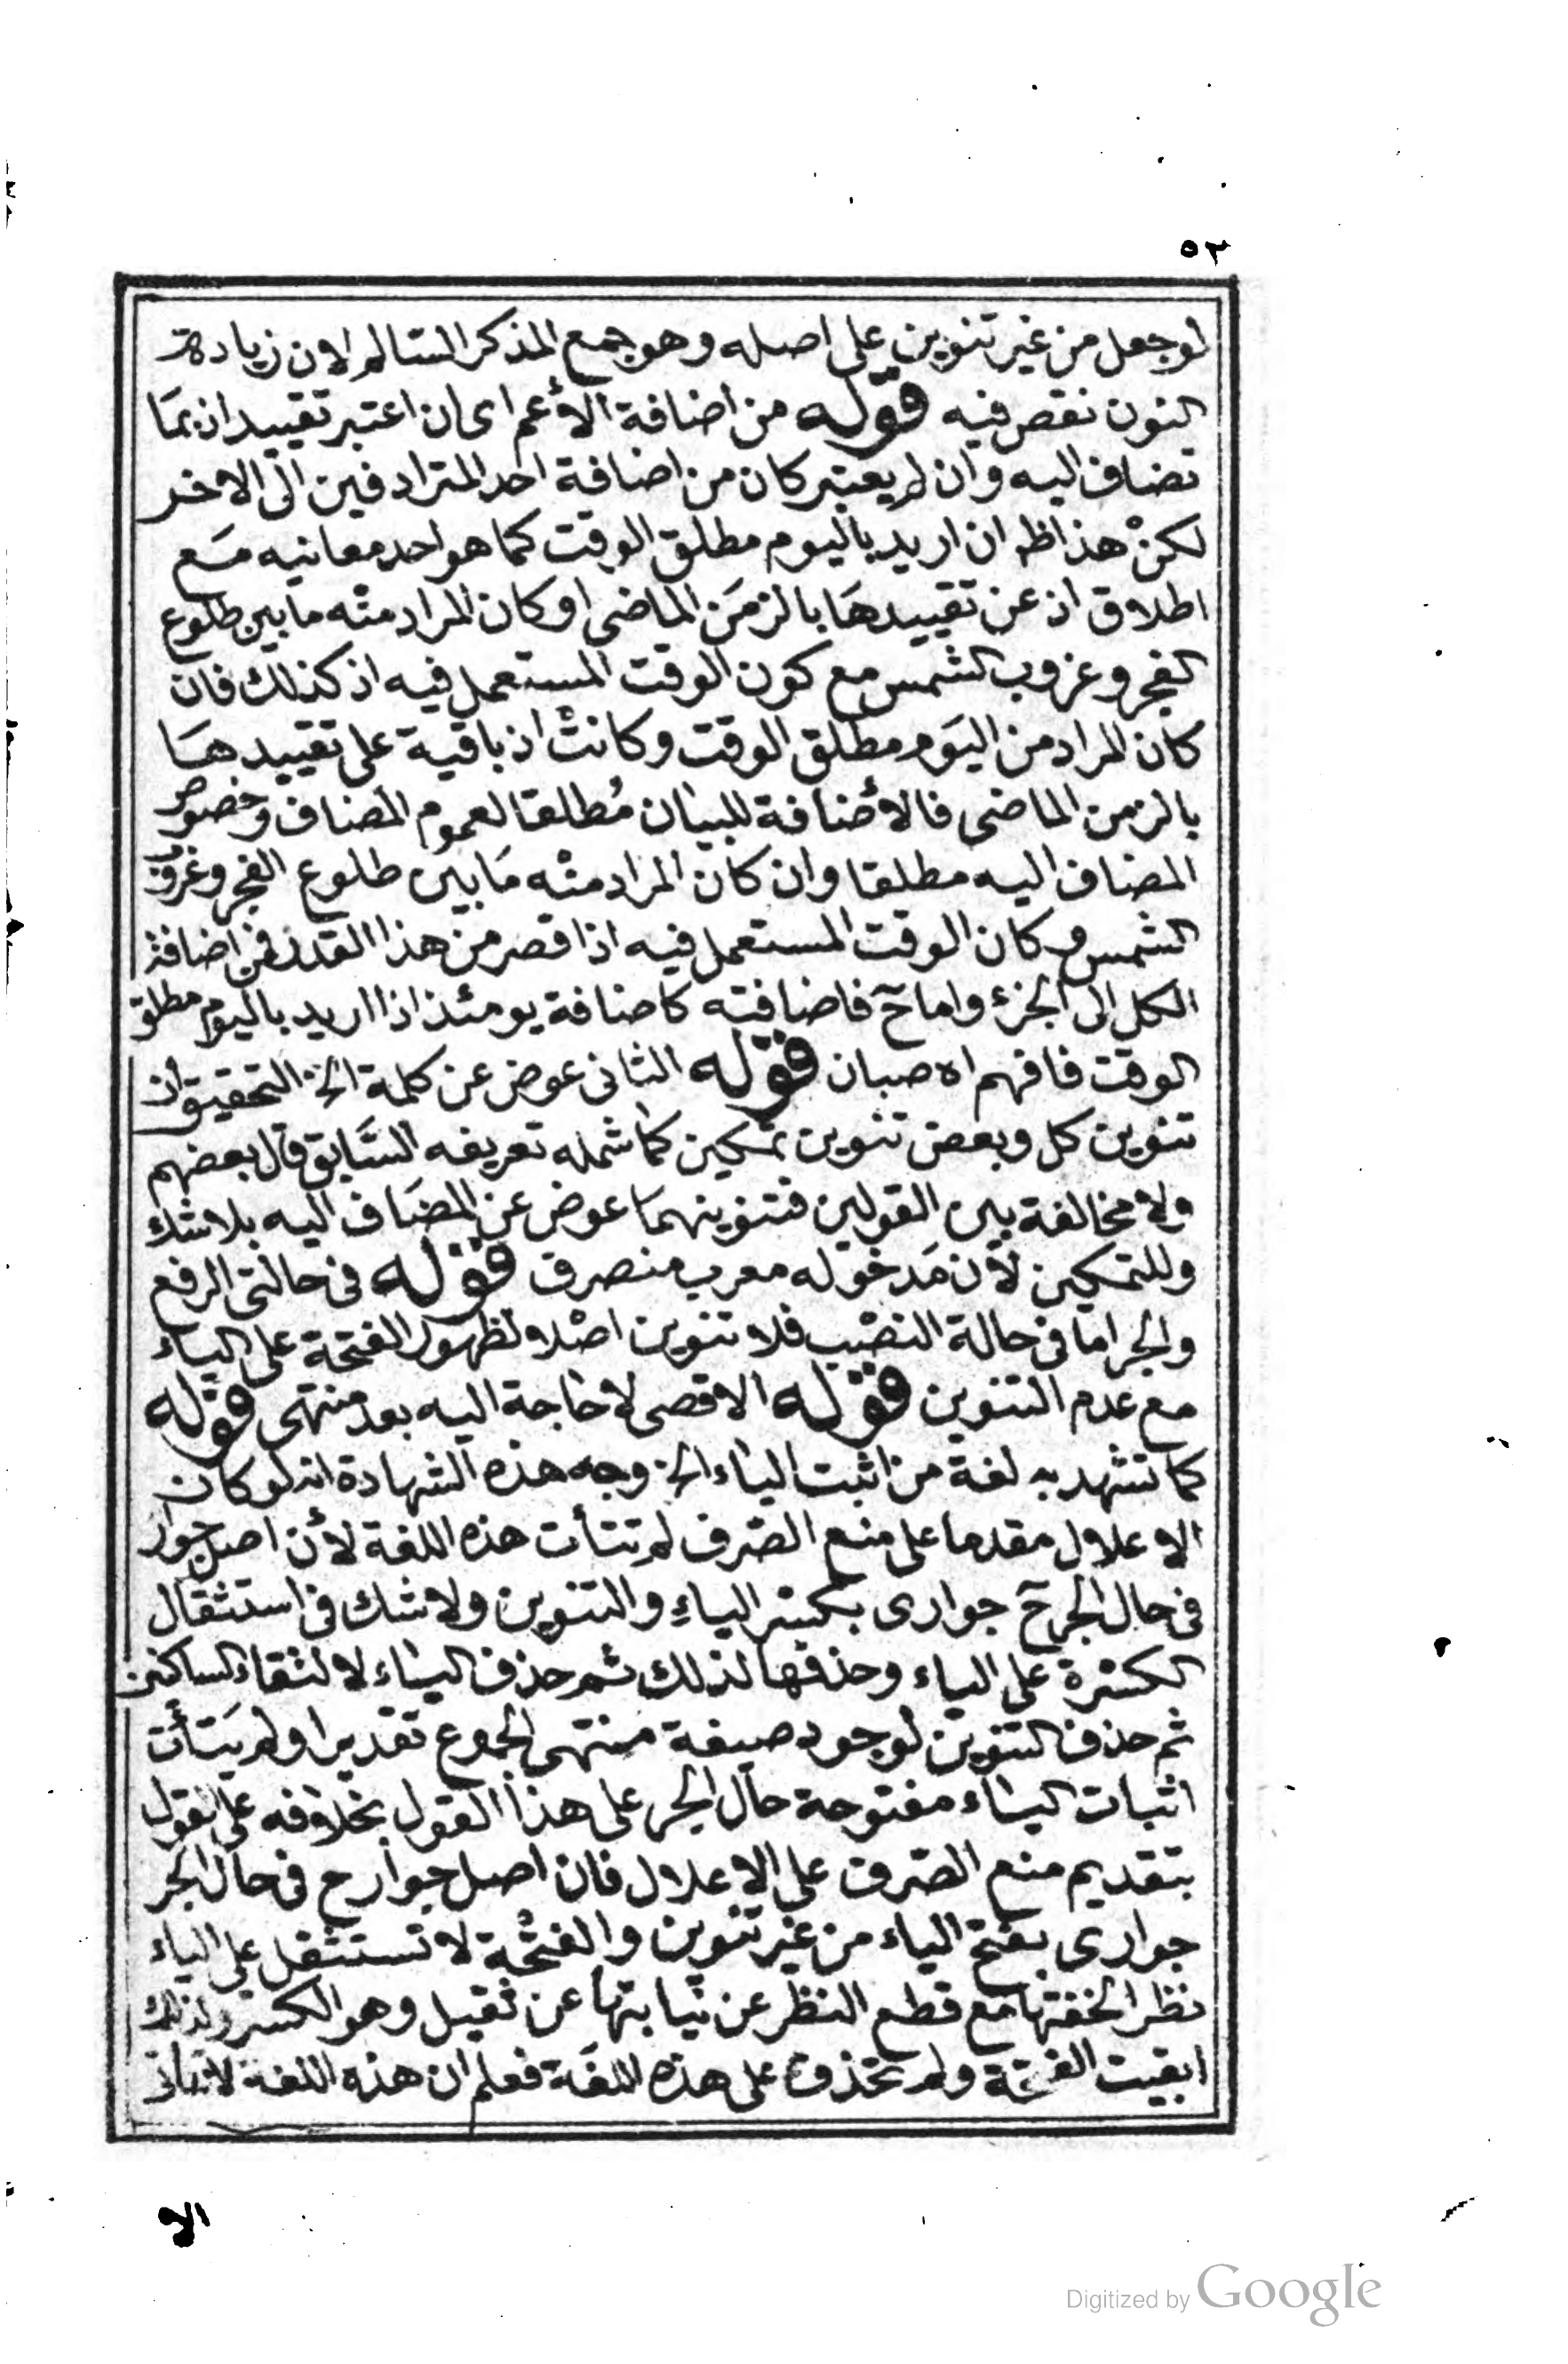 ٥٢
لوجعل من غير تنوين على اصله وهو جمع المذكر السالم لان زيادة
النون نقص فيه قوله من اضافة الأعم اى ان اعتبر تقييد اذ بما
تضاف اليه وان لم يعتبر كان من اضافة احد المترادفين الى الاخر
لكن هذا ظ ان اريد باليوم مطلق الوقت كما هو احد معانيه مع
اطلاق اذ عن تقييدها بالزمن الماضى او كان المراد منه ما بين طلوع
الفجر وغروب الشمس مع كون الوقت المستعمل فيه اذ كذلك فان
كان المراد من اليوم مطلق الوقت وكانت اذ باقية على تقييدها
بالزمن الماضى فالأضافة للبيان مطلقا لعموم المضاف وخصوص
المضاف اليه مطلقا وان كان المراد منه ما بين طلوع الفجر وغروب
الشمس وكان الوقت المستعمل فيه اذ اقصر من هذا القدر فمن اضافة
الكل الى الجزء واما ح فاضافته كاضافة يومئذ اذا اريد باليوم مطلق
الوقت فافهم اه صبان قوله الثانى عوض عن كلمة الخ التحقيق ان
تنوين كل وبعض تنوين تمكين كما شمله تعريفه السابق قال بعضهم
ولا مخالفة بين القولين فتنوينهما عوض عن المضاف اليه بلا شك
وللتمكين لأن مدخوله معرب منصرف قوله فى حالتى الرفع
والجر اما فى حالة النصب فلا تنوين اصلا لظهور الفتحة على الياء
مع عدم التنوين قوله الاقصى لا حاجة اليه بعد منتهى قوله
كما تشهد به لغة من اثبت الياء الخ وجه هذه الشهادة انه لو كان
الاعلال مقدما على منع الصرف لم تتأت هذه اللغة لأن اصل جوار
فى حال الجر ح جوارى بكسر الياء والتنوين ولا شك فى استثقال
الكسرة على الياء وحذفها لذلك ثم حذف الياء لالتقاء الساكنين
ثم حذف التنوين لوجود صيغة منتهى الجموع تقديرا ولم يتأت
اثبات الياء مفتوحة حال الجر على هذا القول بخلافه على القول
بتقديم منع الصرف على الاعلال فان اصل جوار ح فى حال الجر
جوارى بفتح الياء من غير تنوين والفتحة لا تستثقل على الياء
نظر الخفتها مع قطع النظر عن نيابتها عن ثقيل وهو الكسر ولذلك
ابقيت الفتحة ولم تحذف على هذه اللغة فعلم ان هذه اللغة لا تتأتى
الا
Digitized by Google